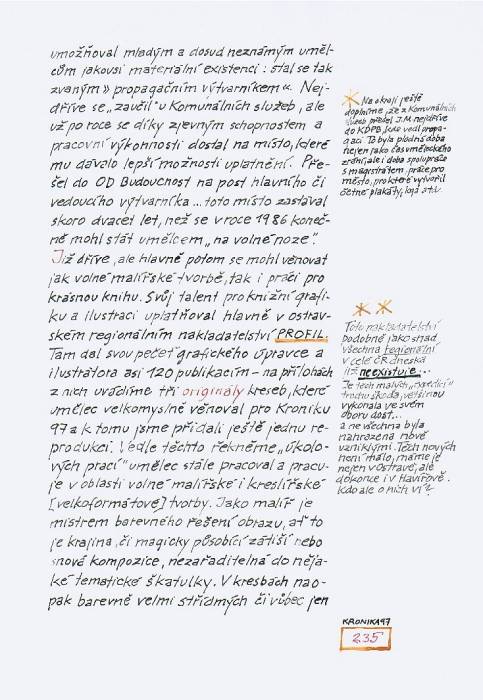 umožňoval mladým a dosud neznámým uměl-
cům jakousi materiální existenci: stal se tak
zvaným » propagačním výtvarníkem «. Nej-
dříve se „zaučil" u Komunálních služeb, ale
už po roce se díky zjevným schopnostem a
pracovní výkonnosti dostal na místo, které
mu dávalo lepší možnosti uplatnění. Pře-
šel do OD Budoucnost na post hlavního či
vedoucího výtvarníka ... toto místo zastával
skoro dvacet let, než se v roce 1986 koneč-
ně mohl stát umělcem „na volné noze".
Již dříve, ale hlavně potom se mohl věnovat
jak volné malířské tvorbě, tak i práci pro
krásnou knihu. Svůj talent pro knižní grafi-
ku a ilustraci uplatňoval hlavně v ostrav-
ském regionálním nakladatelství PROFIL.
Tam dal svou pečeť grafického úpravce a
ilustrátora asi 120 publikacím – na přílohách
z nich uvádíme tři originály kreseb, které
umělec velkomyslně věnoval pro Kroniku
97 a k tomu jsme přidali ještě jednu re-
produkci. Vedle těchto řekněme „úkolo-
vých prací" umělec stále pracoval a pracu-
je v oblasti volné malířské i kreslířské
[velkoformátové] tvorby. Jako malíř je
mistrem barevného řešení obrazu, ať to
je krajina, či magicky působící zátiší nebo
snová kompozice, nezařaditelná do něja-
ké tematické škatulky. V kresbách nao-
pak barevně velmi střídmých či vůbec jen
Na okraji ještě
doplníme, že z Komunálních
služeb přešel J.M. nejdříve
do KDPB, kde vedl propa-
gaci. To byla plodná doba
nejen jako čas uměleckého
zrání, ale i doba spolupráce
s magistrátem, práce pro
město, pro které vytvořil
četné plakáty, loga atd.
Toto nakladatelství
podobně jako snad
všechna regionální
v celé ČR dneska
již neexistuje...
Je těch malých „expedicí"
trochu škoda, většinou
vykonala ve svém
oboru dost...
a ne všechna byla
nahrazena nově
vzniklými. Těch nových
není málo, máme je
nejen v Ostravě, ale
dokonce i v Havířově.
Kdo ale o nich ví?
KRONIKA 97
235